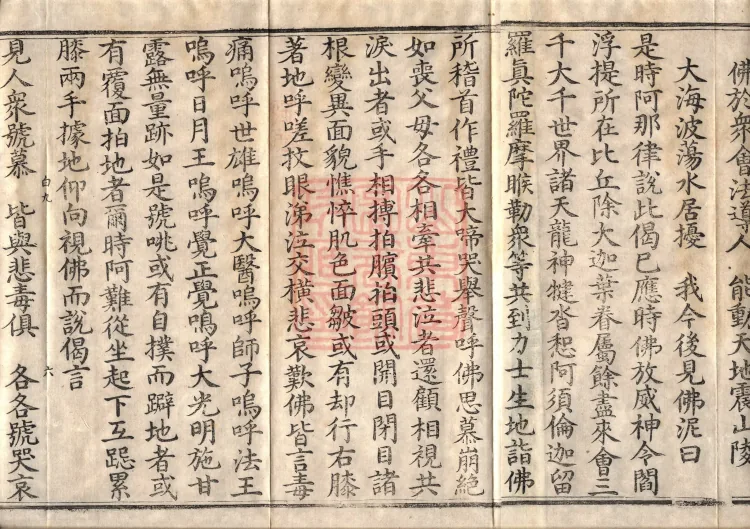 佛於衆會法導人　能動天地震山陵
大海波蕩水居擾　我今後見佛泥曰
是時阿那律說此偈已應時佛放威神令閻
浮提所在比丘除大迦葉眷屬餘盡來會三
千大千世界諸天龍神揵沓惒阿須倫迦留
羅眞陀羅摩睺勒衆等共到力士生地詣佛
所稽首作禮皆大啼哭舉聲呼佛思慕崩絕
如喪父母各各相牽共悲泣者還顧相視共
淚出者或手相搏拍臏拍頭或開目閉目諸
根變異面貌憔悴肌色面皺或有却行右膝
著地呼嗟抆眼涕泣交橫悲哀歎佛皆言毒
痛嗚呼世雄嗚呼大醫嗚呼師子嗚呼法王
嗚呼日月王嗚呼覺正覺嗚呼大光明施甘
露無量跡如是號咷或有自撲而躃地者或
有覆面拍地者爾時阿難從坐起下互跽累
膝兩手據地仰向視佛而說偈言
見人衆號慕　皆與悲毒俱　各各號哭哀
白九
六